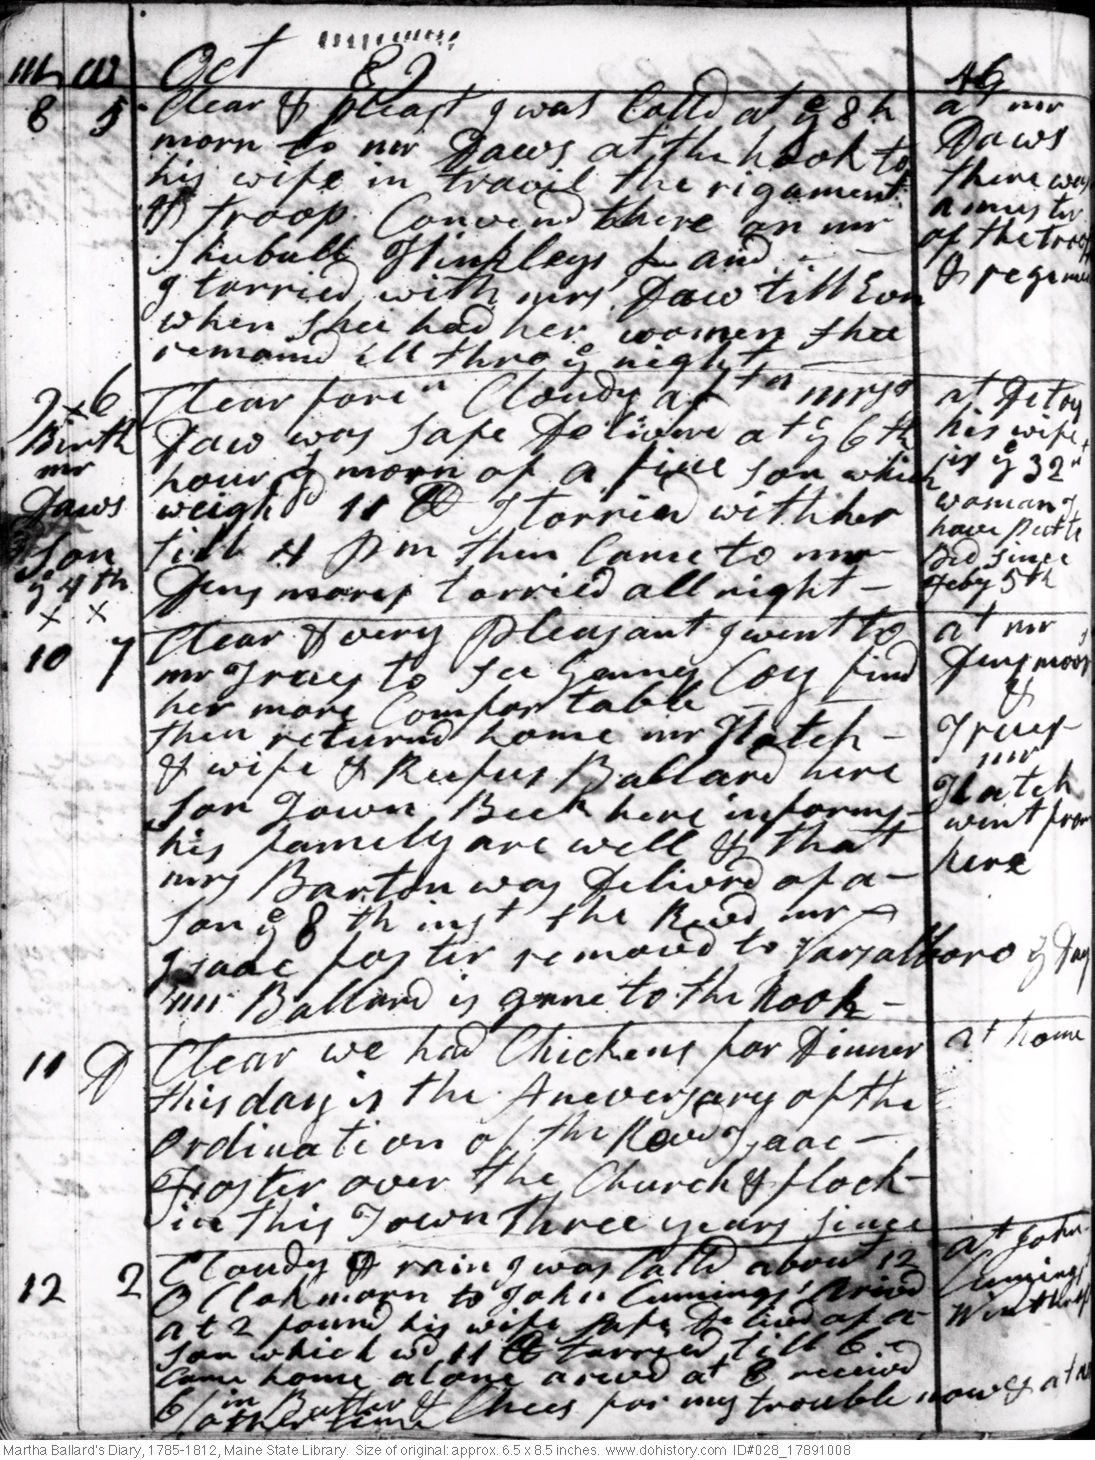 mh W Oct 89 46
8 5 Clear & pleast I was Calld at ye 8 h
morn to mr Daws at the hook to
his wife in travil the rigament
& troop Convend there on mr
Shuball Hinkleys Land
I tarried with mrs Daw till Evn
when Shee had her women Shee
remaind ill thro ye night
at mr
Daws
there was
a muster
of the troop
& regimen
9 x 6 Clear foren Cloudy aftn mrs
Birth Daw was Safe Delivrd at ye 6th
mr hour of morn of a fine Son which
Daws weighd 11 lb I tarried with her
Son till 4 Pm then Came to mr
ye 4th Densmores tarried all night
x x
his wife
is ye 32n
woman I
have putt to
Bed Since
Feby 5th
10 7 Clear & very Pleasant I went to
mr Trues to See Genny Coy find
her more Comfortable
then returnd home mr Hatch
& wife & Rufus Ballard here
Son Town Beck here informs
his family are well & that
mrs Barton was Delivrd of a
Son ye 8th inst the Revd mr
Isaac foster removd to Varsalboro ye Day
mr Ballard is gone to the Hook
at mr
Densmoors
&
Trues
mr
Hatch
went from
here
11 D Clear we had Chickens for Dinner
this day is the Aneversary of the
Ordination of the Revd Isaac
Foster over the Church & flock
in this Town three years Since
at home
12 2 Cloudy & rain I was Calld about 12
O Clok morn to John Cumings' Arivd
at 2 found his wife Safe Delivd of a
Son which wd 11 lb tarried till 6
Came home alone arivd at 8 receivd
6/ in Butter & Chees for my trouble now & at
other time
at John
Cumings'
Winthrop
Martha Ballard's Diary, 1785-1812, Maine State Library. Size of original: approx. 6.5 x 8.5 inches. www.dohistory.com ID#028_17891008